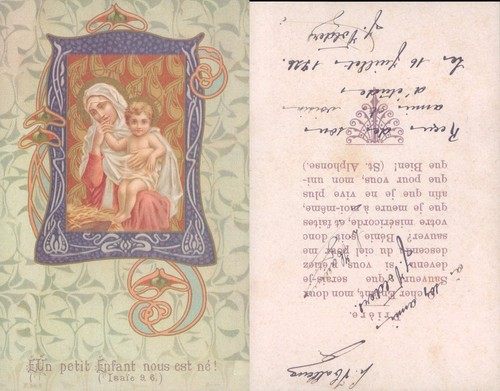 Un petit Enfant nous est né!
(Isaïe 9. 6.)
Prière.
cher Enfant, mon doux
Sauveur, que serais-je
devenu si vous n'étiez
descendu du ciel pour me
sauver? Bénie soit donc
votre miséricorde, et faites
que je meure à moi-même,
afin que je ne vive plus
que pour vous, mon uni-
que Bien! (St. Alphonse).
Reçu
ami et voisin
d'études
Le 16 Juillet
J. Volders